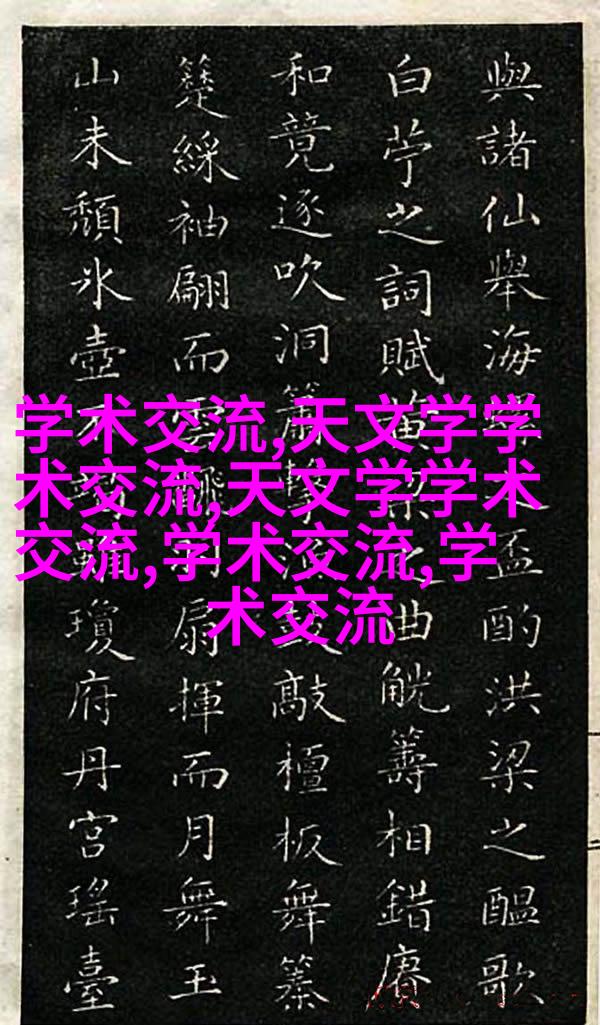 学术交流,天文学学
术交流,天文学学术
交流,学术交流,学
术交流
與諸仙舉海盃酌洪梁之醖歌
白苧之詞賦黄曲觥籌相錯賡
和竟逐吹洞簫敲檀板舞
綵袖翩而雲扇揮而月舞玉
山未頹氷壺瓊府丹宮瑤臺